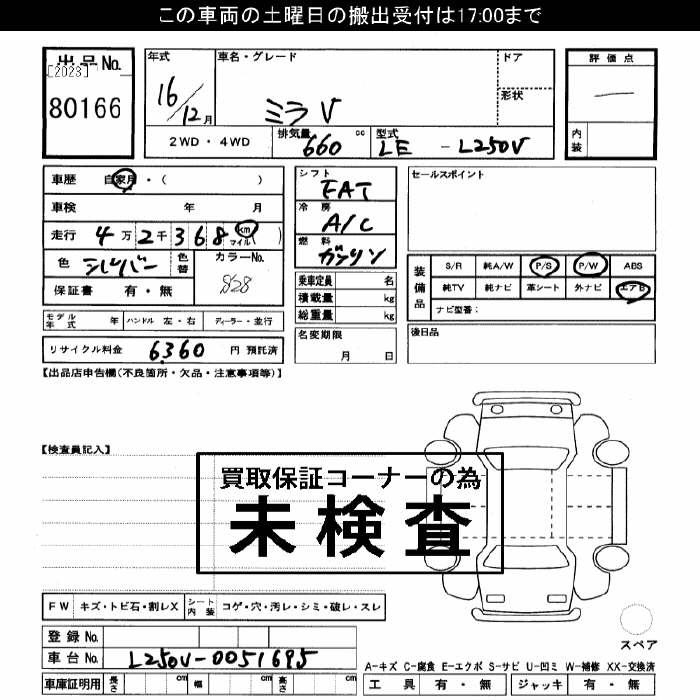 この車両の土曜日の搬出受付は17:00まで
出品No. 年式 車名・グレード ドア 評価点
[2023]
80166 16/12月 ミラV 形状 —
内装
2WD・4WD 排気量 660 cc 型式 LE - L250V
車歴 自家用・( ) シフト FAT セールスポイント
車検 年 月 冷房 A/C
走行 4万2千368 km マイル ( ) 燃料 ガソリン
色 シルバー 色替 カラーNo. S28
装備品 S/R 純A/W P/S P/W ABS
純TV 純ナビ 革シート 外ナビ エアB
ナビ型番:
保証書 有・無
乗車定員 名
積載量 kg
総重量 kg
モデル年式 年 ハンドル 左・右 ディーラー・並行
名変期限 月 日
後日品
リサイクル料金 6360 円 預託済
【出品店申告欄(不良箇所・欠品・注意事項等)】
【検査員記入】
買取保証コーナーの為
未検査
FW キズ・トビ石・割レX シート内装 コゲ・穴・汚レ・シミ・破レ・スレ
登録No.
スペア
車台No. L250V-0051695
A-キズ C-腐食 E-エクボ S-サビ U-凹ミ W-補修 XX-交換済
車庫証明用 長さ cm 幅 cm 高さ cm
工具 有・無 ジャッキ 有・無